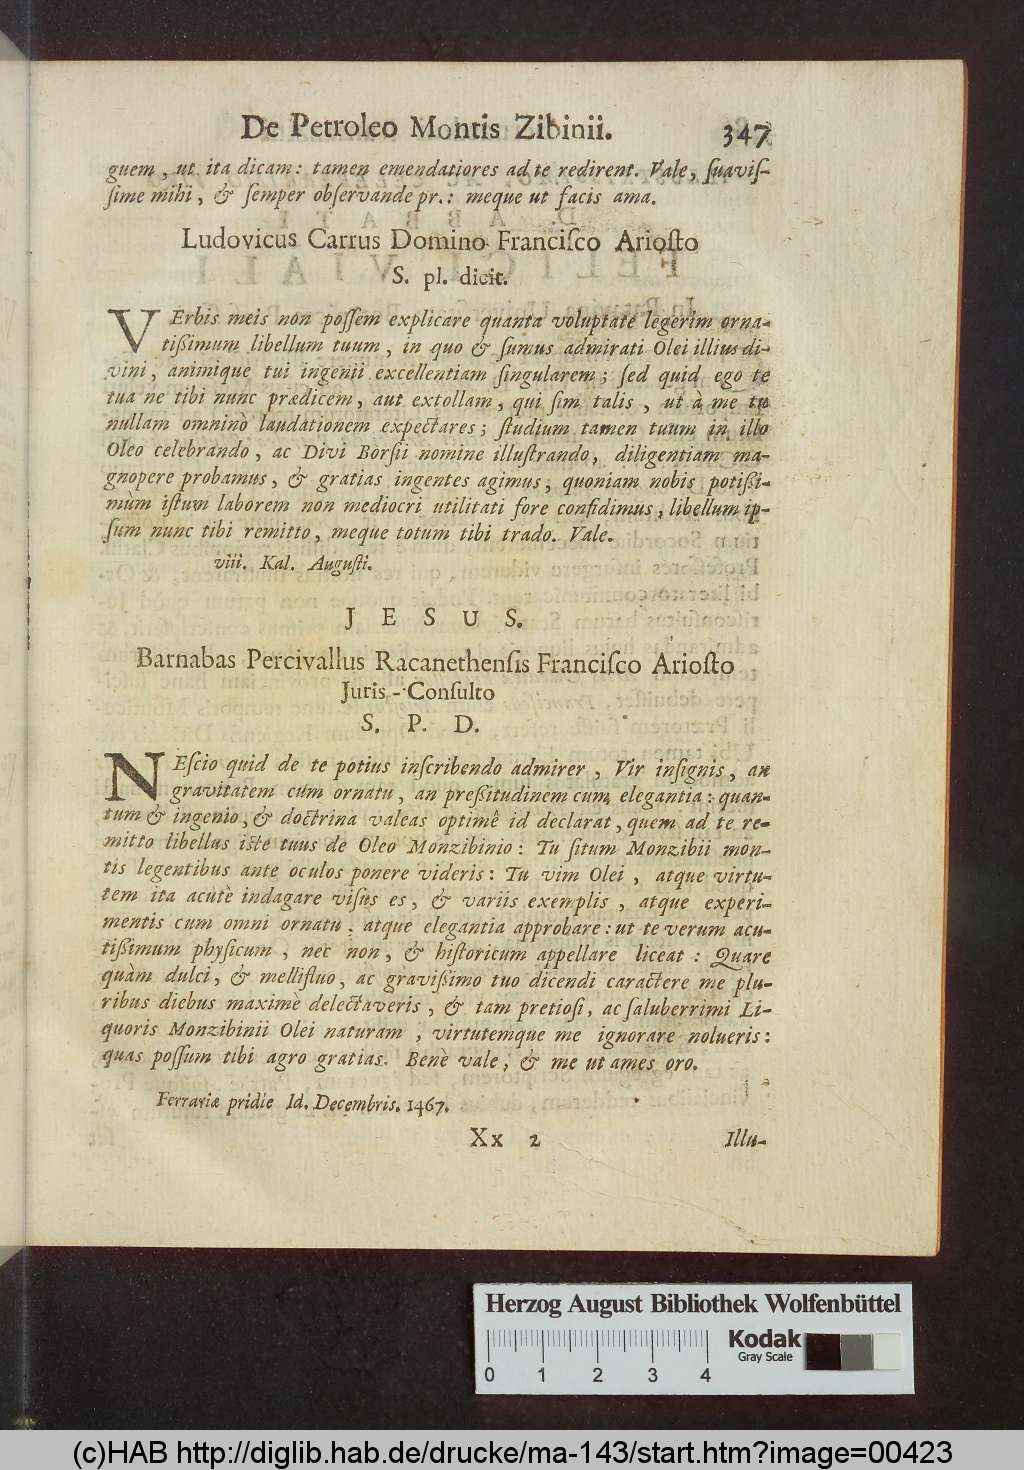 De Petroleo Montis Zibinii. 347
guem, ut ita dicam: tamen emendatiores ad te redirent. Vale, ſuaviſ-
ſime mihi, & ſemper obſervande pr.: meque ut facis ama.
Ludovicus Carrus Domino Franciſco Arioſto
S. pl. dicit.
VErbis meis non poſſem explicare quanta voluptate legerim orna-
tißimum libellum tuum, in quo & ſumus admirati Olei illius di-
vini, animique tui ingenii excellentiam ſingularem; ſed quid ego te
tua ne tibi nunc prædicem, aut extollam, qui ſim talis, ut à me tu
nullam omninò laudationem expectares; ſtudium tamen tuum in illo
Oleo celebrando, ac Divi Borſii nomine illuſtrando, diligentiam ma-
gnopere probamus, & gratias ingentes agimus, quoniam nobis potißi-
mum iſtum laborem non mediocri utilitati fore confidimus, libellum ip-
ſum nunc tibi remitto, meque totum tibi trado. Vale.
viii. Kal. Auguſti.
J E S U S.
Barnabas Percivallus Racanethenſis Franciſco Arioſto
Juris-Conſulto
S. P. D.
NEſcio quid de te potius inſcribendo admirer, Vir inſignis, an
gravitatem cum ornatu, an preßitudinem cum elegantia: quan-
tum & ingenio, & doctrina valeas optimê id declarat, quem ad te re-
mitto libellus iſte tuus de Oleo Monzibinio: Tu ſitum Monzibii mon-
tis legentibus ante oculos ponere videris: Tu vim Olei, atque virtu-
tem ita acutè indagare viſus es, & variis exemplis, atque experi-
mentis cum omni ornatu, atque elegantia approbare: ut te verum acu-
tißimum phyſicum, nec non, & hiſtoricum appellare liceat: Quare
quàm dulci, & mellifluo, ac gravißimo tuo dicendi caractere me plu-
ribus diebus maximè delectaveris, & tam pretioſi, ac ſaluberrimi Li-
quoris Monzibinii Olei naturam, virtutemque me ignorare nolueris:
quas poſſum tibi agro gratias. Benè vale, & me ut ames oro.
Ferrariæ pridie Id. Decembris. 1467.
Xx 2 Illu-
Herzog August Bibliothek Wolfenbüttel
Kodak
Gray Scale
0 1 2 3 4
(c)HAB http://diglib.hab.de/drucke/ma-143/start.htm?image=00423